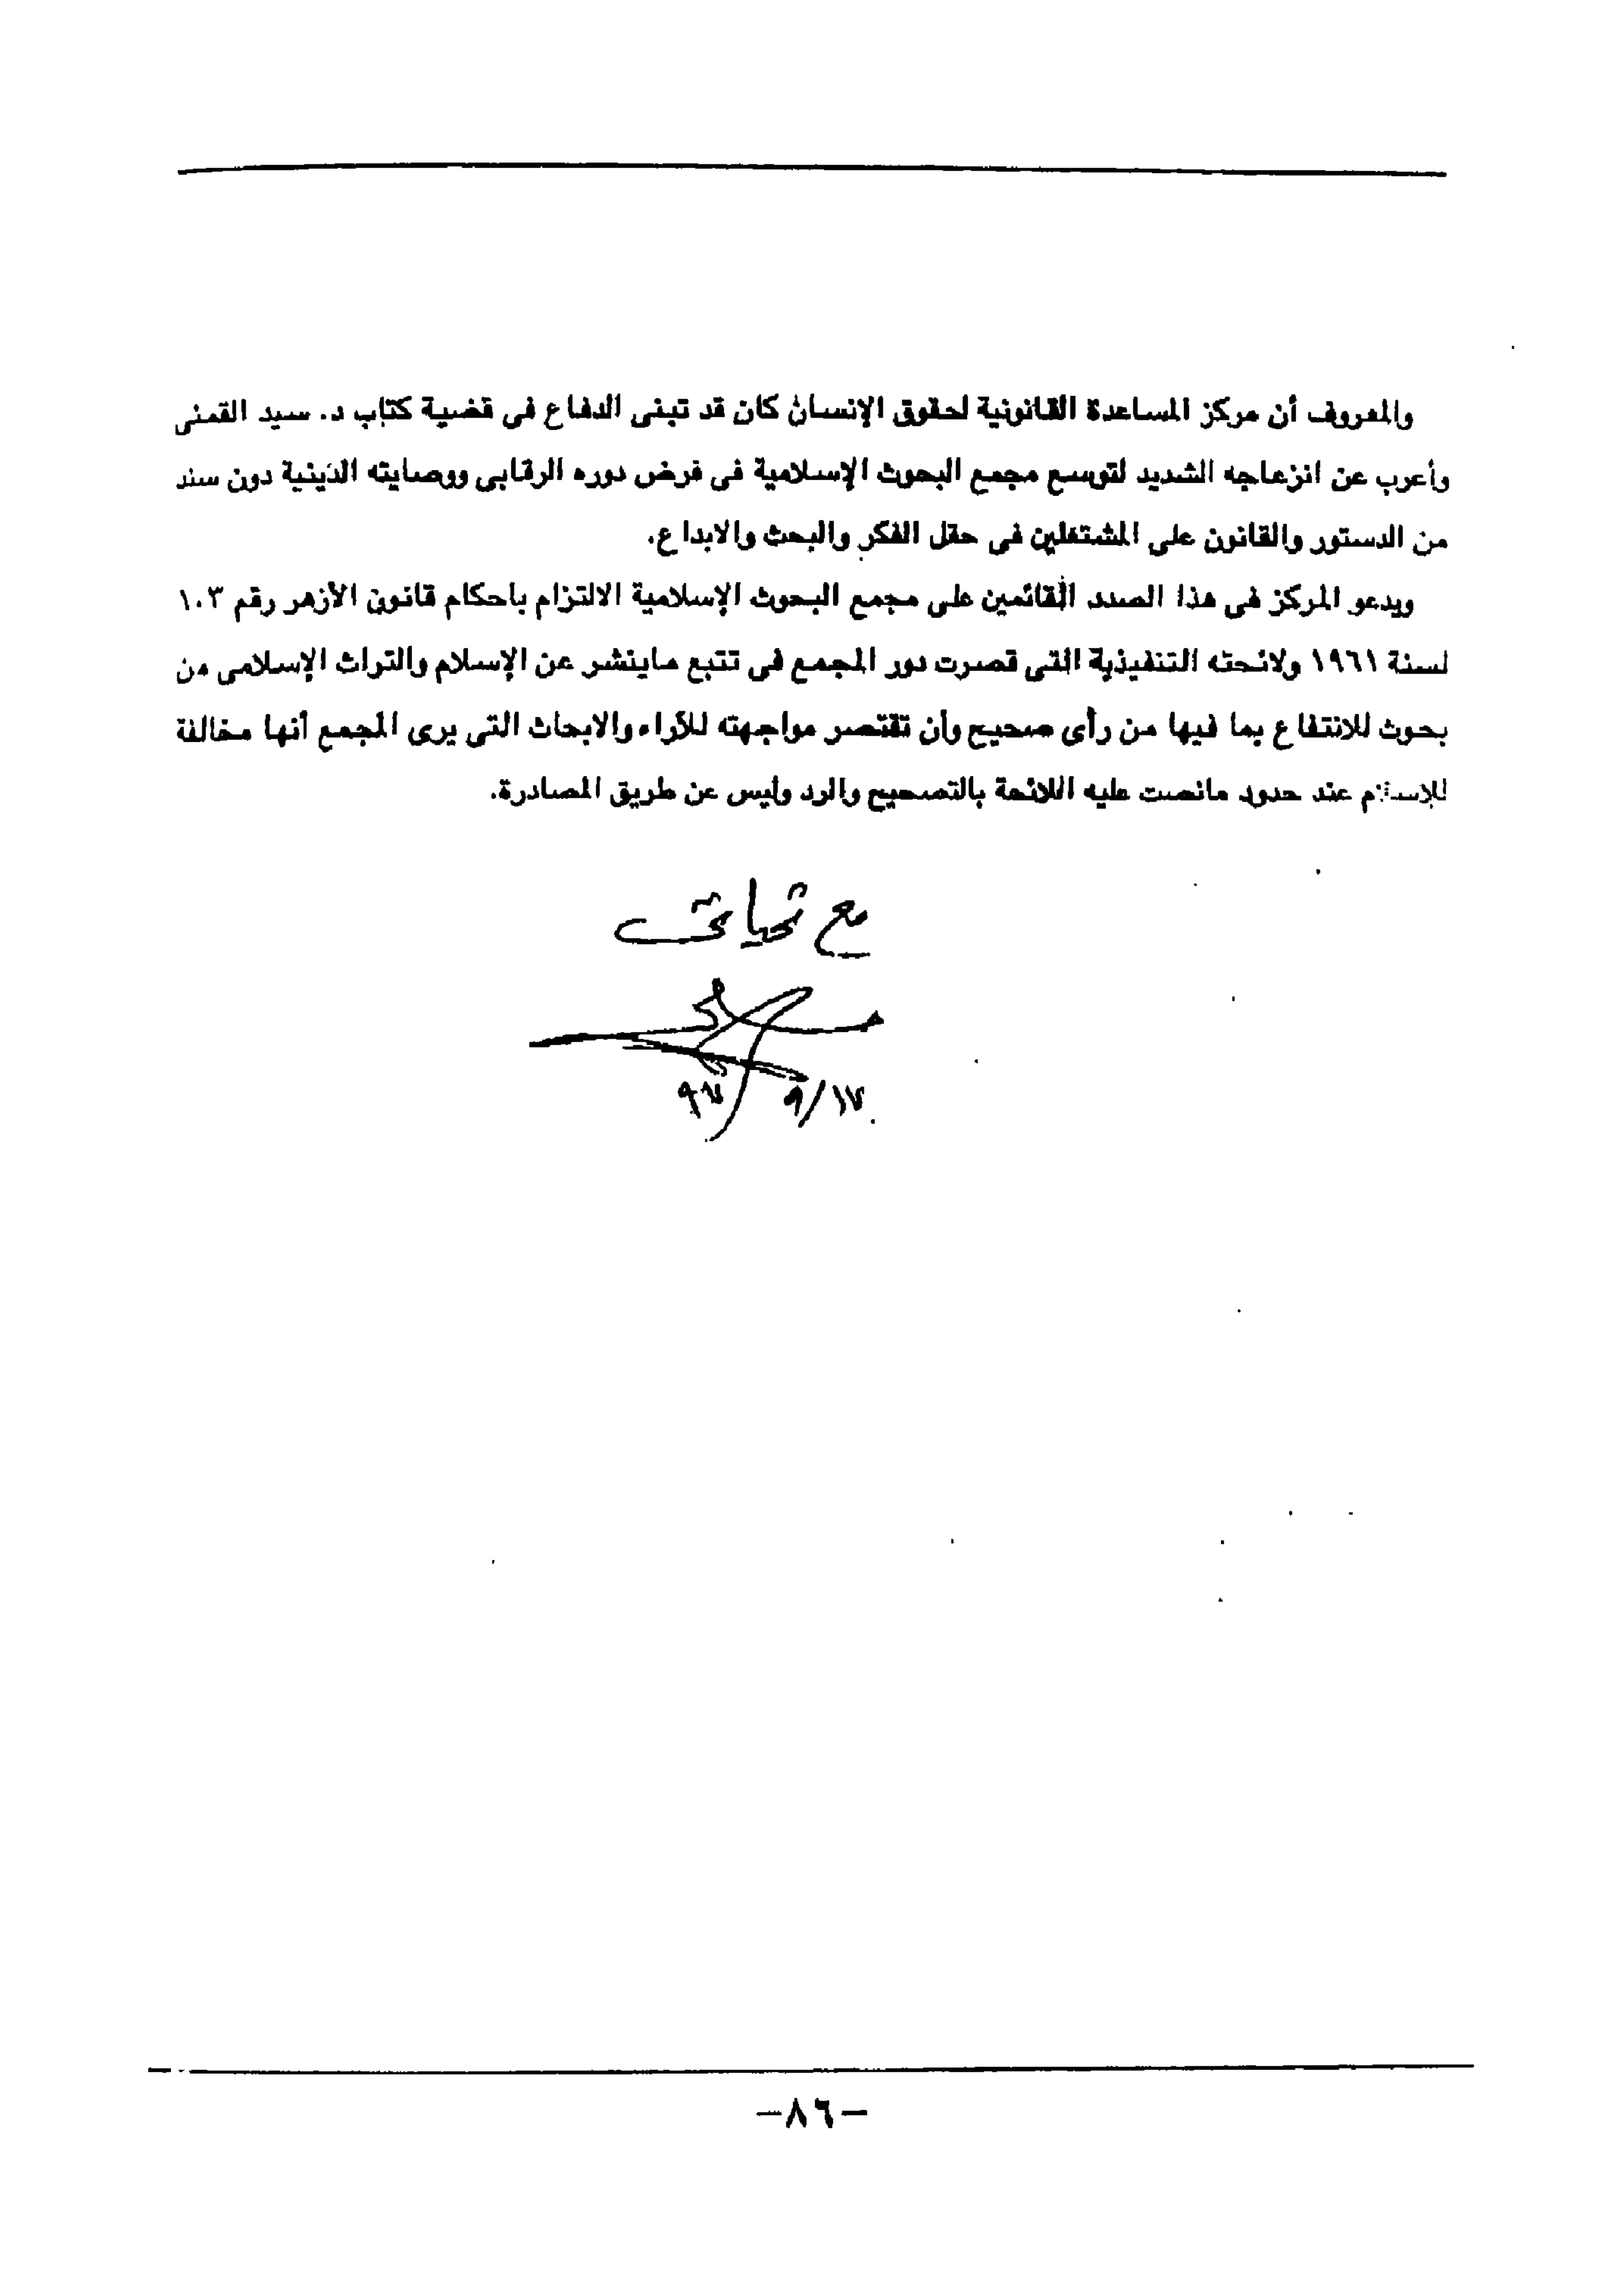 والمعروف أن مركز المساعدة القانونية لحقوق الإنسان كان قد تبنى الدفاع فى قضية كتاب د. سيد القمنى
وأعرب عن انزعاجه الشديد لتوسع مجمع البحوث الإسلامية فى فرض دوره الرقابى ووصايته الدينية دون سند
من الدستور والقانون على المشتغلين فى حقل الفكر والبحث والابداع.
ويدعو المركز فى هذا الصدد القائمين على مجمع البحوث الإسلامية الالتزام باحكام قانون الأزهر رقم ١٠٣
لسنة ١٩٦١ ولائحته التنفيذية التى قصرت دور المجمع فى تتبع ماينشر عن الإسلام والتراث الإسلامى من
بحوث للانتفاع بما فيها من رأى صحيح وأن تقتصر مواجهته للآراء والابحاث التى يرى المجمع أنها مخالفة
للإسلام عند حدود مانصت عليه اللائحة بالتصحيح والرد وليس عن طريق المصادرة.
مع تحياتى
١٧/٩ ٩٧
-٨٦-